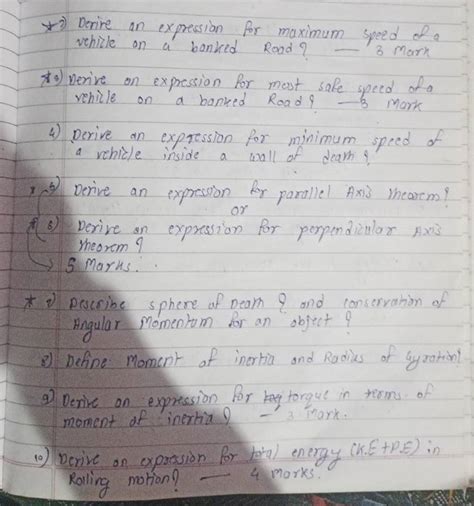 * 2) Derive an expression for maximum speed of a
vehicle on a banked Road? — 3 Mark
* 3) Derive an expression for most safe speed of a
vehicle on a banked Road? — 3 Mark
4) Derive an expression for minimum speed of
a vehicle inside a wall of death?
* 5) Derive an expression for parallel Axis theorem?
or
* 6) Derive an expression for perpendicular Axis
theorem?
→ 5 Marks.
* 7) Describe sphere of Death? and conservation of
Angular Momentum for an object?
8) Define Moment of inertia and Radius of Gyration?
9) Derive an expression for torque in terms of
moment of inertia? — 3 Mark.
10) Derive an expression for total energy (K.E+P.E) in
Rolling motion? — 4 Marks.